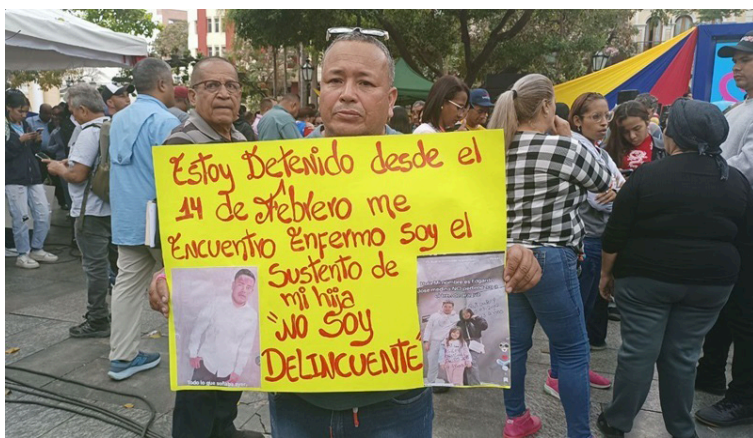 Estoy Detenido desde el
14 de Febrero me
Encuentro Enfermo soy el
Sustento de
mi hija
"NO SOY
DELINCUENTE"